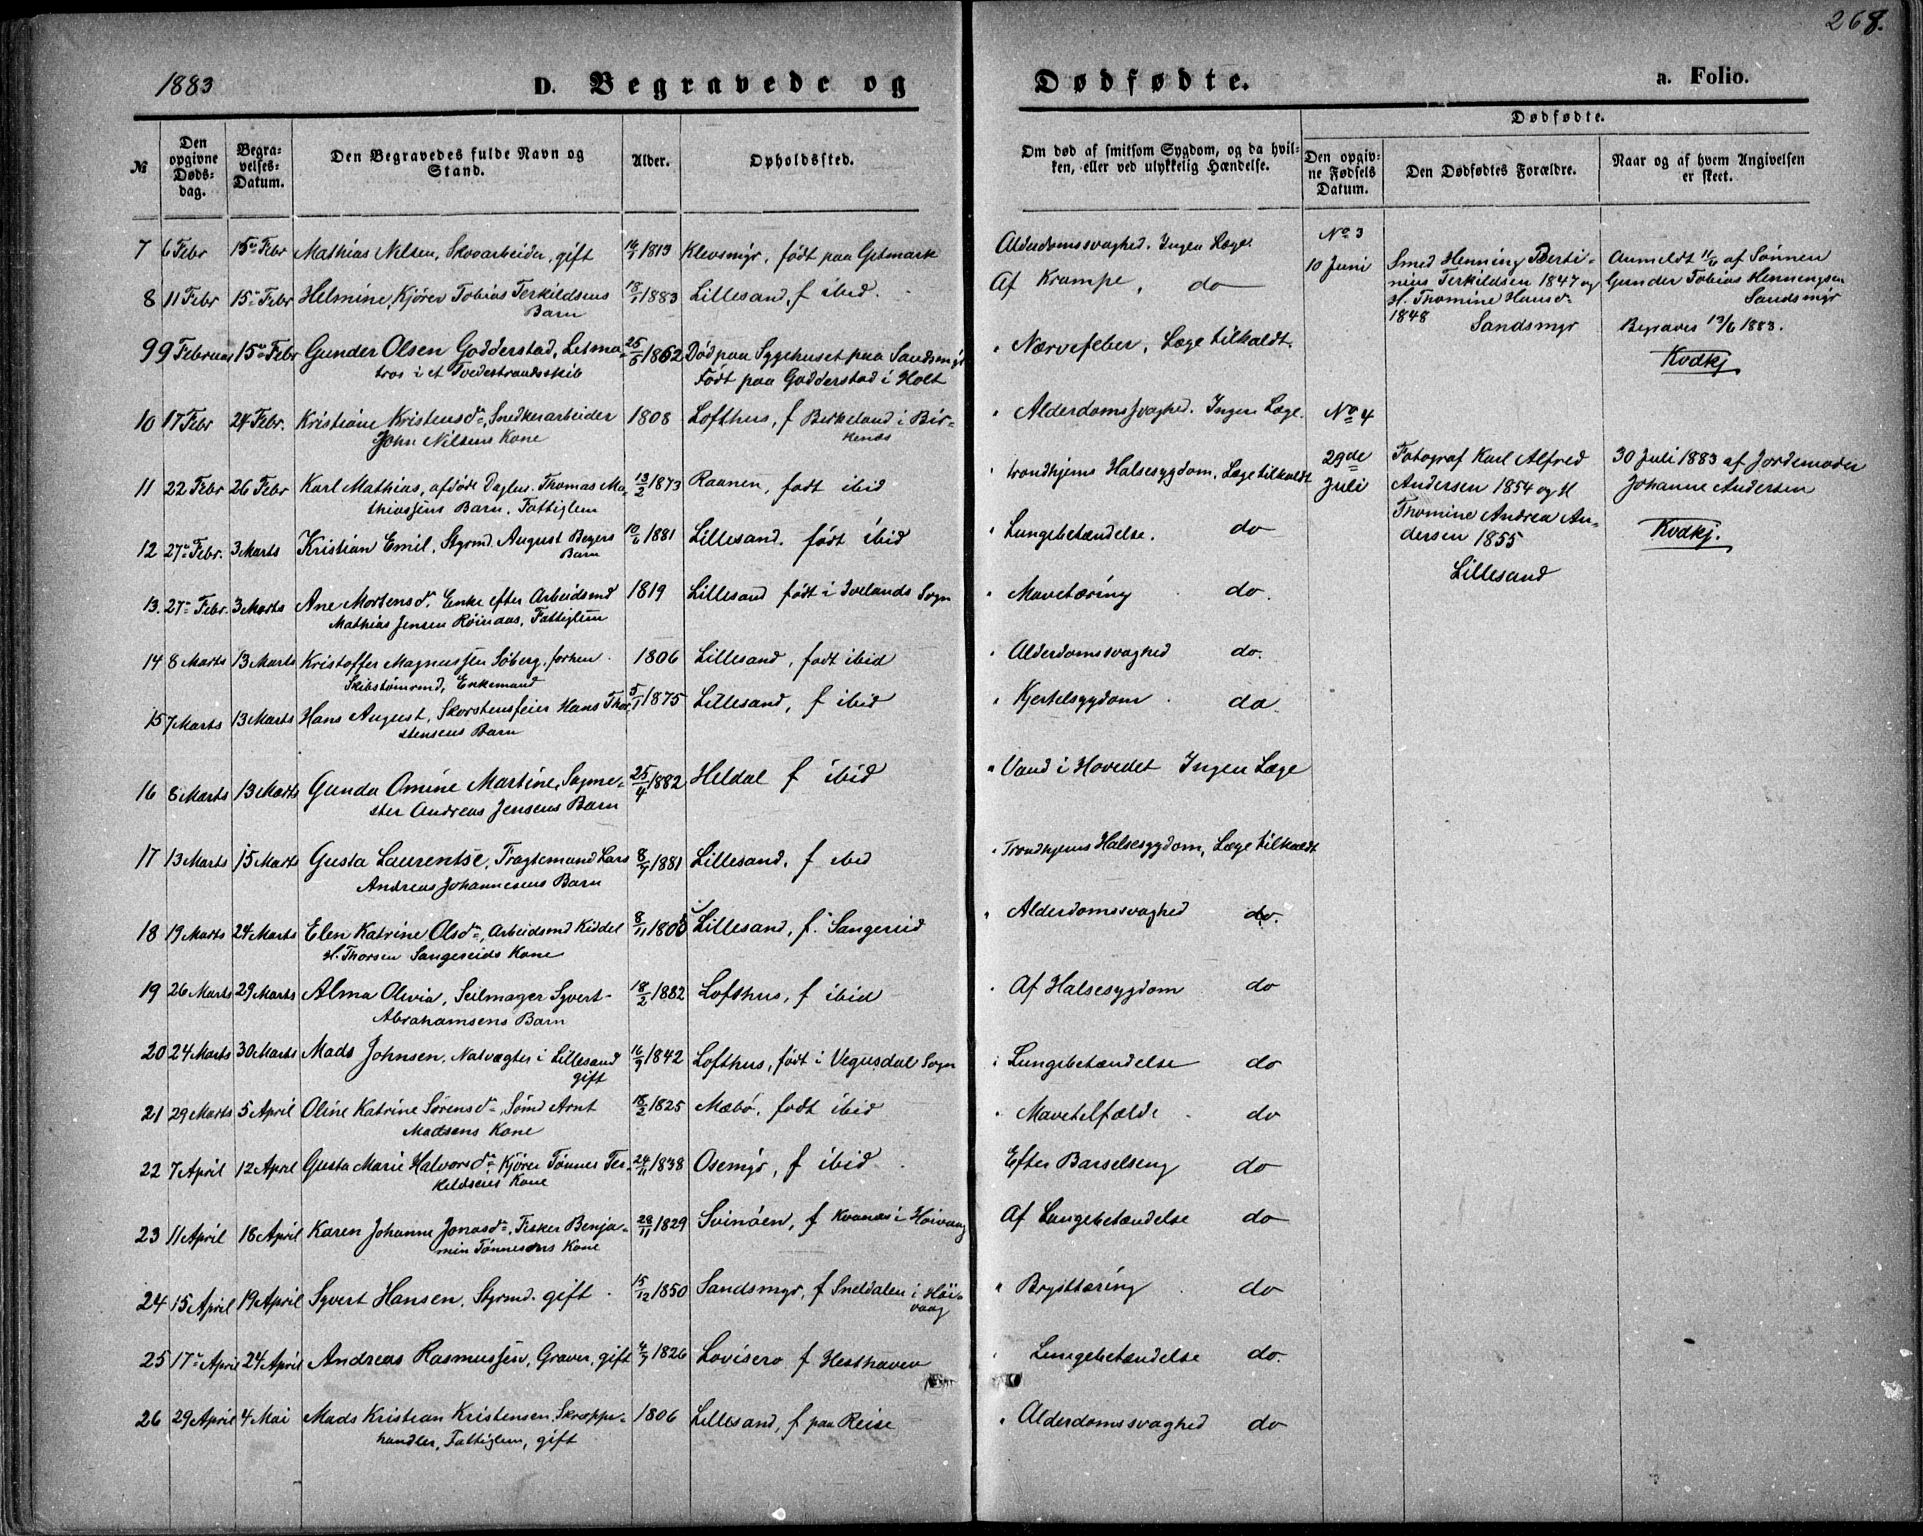 268.
1883
D. Begravede og
Dødfødte.
a. Folio.
No
Den opgivne Dødsdag.
Begravelses-Datum.
Den Begravedes fulde Navn og Stand.
Alder.
Opholdssted.
Om død af smitsom Sygdom, og da hvilken, eller ved ulykkelig Hændelse.
Dødfødte.
Den opgivne Fødsels Datum.
Den Dødfødtes Forældre.
Naar og af hvem Angivelsen er skeet.
7 6 Febr 15 Febr Mathias Nilsen, Skovarbeider, gift 1813 Klevsmyr, født paa Gitmark Alderdomssvaghed. Ingen Læge.
8 11 Febr 15 Febr Helmine, Kjører Tobias Terkildsens 1883 Lillesand, f ibid. Af Krampe, do
Barn
9 9 Februar 15 Febr Gunder Olsen Godderstad, Letma- 1862 Død paa Sygehuset paa Sandsmyr Nervefeber, Læge tilkaldt.
tros i et Tvedestrandsskib Født paa Godderstad i Holt
10 17 Febr 24 Febr. Kristiane Kristensd., Snedkerarbeider 1808 Lofthus, f Birkeland i Bir- Alderdomssvaghed. Ingen Læge.
John Nilsens Kone kenes
11 22 Febr 26 Febr Karl Mathias, afdøde Dagln. Thomas Ma- 13/2 1873 Raanen, født ibid trondhjems Halsesygdom, Læge tilkaldt
thiassens Barn. Fattiglem
12 27 Febr. 3 Marts Kristian Emil, Styrmd. August Beyers 1881 Lillesand, født ibid Lungebetændelse. do
Barn
13. 27 Febr. 3 Marts Ane Mortensd., Enke efter Arbeidsmd 1819 Lillesand født i Ivelands Sogn Mavetæring do.
Mathias Jensen Røinaas, Fattiglem
14 8 Marts 13 Marts Kristoffer Magnussen Søberg, forhen 1806 Lillesand, født ibid Alderdomssvaghed do.
Skibstømrmd, Enkemand
15 7 Marts 13 Marts Hans August, Skorstensfeier Hans Thor- 5/1 1875 Lillesand, f ibid Kjertelsygdom do.
stensens Barn
16 8 Marts 13 Marts Gunda Omine Martine, Sagme- 25/4 1882 Heldal f ibid Vand i Hovedet Ingen Læge
ster Andreas Jensens Barn
17 13 Marts 15 Marts Gusta Laurentse, Fragtemand Lars 1881 Lillesand, f ibid Trondhjems Halsesygdom, Læge tilkaldt
Andreas Johannesens Barn
18 19 Marts 24 Marts Elen Katrine Olsd., Arbeidsmd Kiddel 8/11 Lillesand, f. Sangereid Alderdomssvaghed do.
H. Thorsen Sangereids Kone
19 26 Marts 29 Marts Alma Olivia, Seilmager Syvert 18/2 1882 Lofthus, f ibid Af Halsesygdom do
Abrahamsens Barn
20 24 Marts 30 Marts Mads Johnsen, Natvægter i Lillesand 16/9 1842 Lofthus, født i Vegusdal Sogn Lungebetændelse do
gift
21 29 Marts 5 April Oline Katrine Sørensd., Sømd Arnt 18/2 1825 Mæbø, født ibid Mavetilfælde do
Madsens Kone
22 7 April 12 April Gusta Marie Halvorsd., Kjører Tønnes Ter- 24/11 1838 Osemyr, f ibid Efter Barselseng do
kildsens Kone
23 11 April 18 April Karen Johanne Jonasd., Fisker Benja- 28/11 1829 Svinøen, f Kvanæs i Høivaag Af Lungebetændelse do
min Tønnesens Kone
24 15 April 19 April Syvert Hansen, Styrmd. gift 15/12 1850 Sandsmyr, f Sneldalen i Høi- Brysttæring do
vaag
25 17 April 24 April Andreas Rasmussen, Graver, gift 1826 Lovisero f Hesthaven Lungebetændelse do.
26 29 April 4 Mai Mads Kristian Kristensen, Skræppe- 1806 Lillesand, f paa Reise Alderdomssvaghed do
handler, Fattiglem, gift
No 3
10 Juni
Smed Henning Berti-
nius Terkildsen 1847 og
H. Thomine Hansd.
1848 Sandsmyr
Anmeldt 11/6 af Sønnen
Gunder Tobias Henningsen
Sandsmyr
Begraves 1883.
Kvdkj
No 4
29de
Juli
Fotograf Karl Alfred
Andersen 1854 og H
Thomine Andrea An-
dersen 1855
Lillesand
30 Juli 1883 af Jordemoder
Johanne Andersen
Kvdkj.